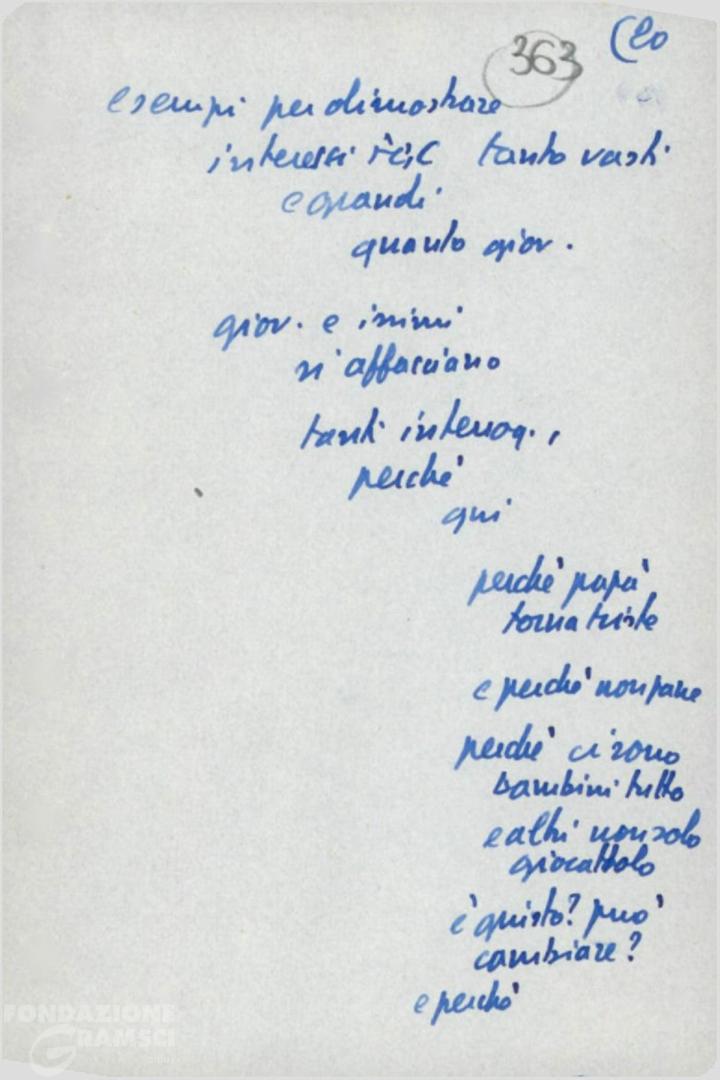 363
(20
esempi per dimostrare
interessi FGC tanto vasti
e grandi
quanto giov.
giov. e
si affacciano
tanti interrog.,
perché
qui
perché papà
torna triste
e perché non pane
perché ci sono
bambini tutto
e altri non solo
giocattolo
è giusto? può
cambiare?
e perché
FONDAZIONE
GRAMSCI